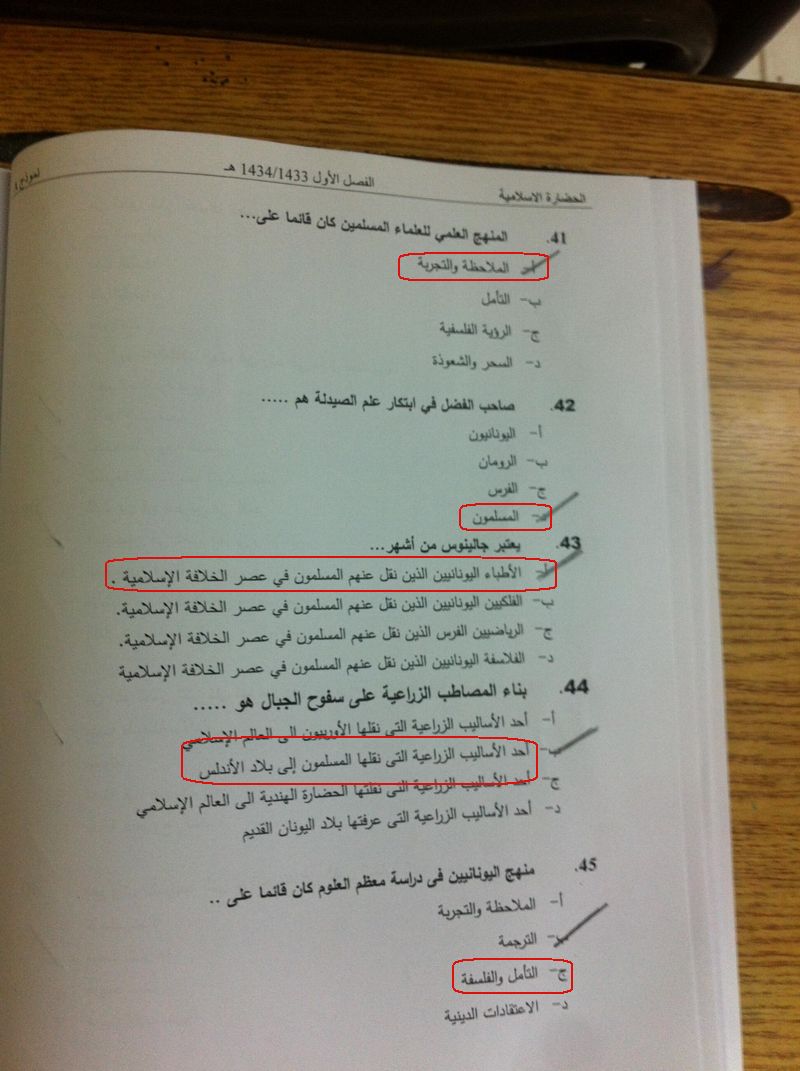 الحضارة الاسلامية الفصل الأول 1434/1433 هـ
41. المنهج العلمي للعلماء المسلمين كان قائما على...
أ- الملاحظة والتجربة
ب- التأمل
ج- الرؤية الفلسفية
د- السحر والشعوذة
42. صاحب الفضل في ابتكار علم الصيدلة هم .....
أ- اليونانيون
ب- الرومان
ج- الفرس
د- المسلمون
43. يعتبر جالينوس من أشهر...
أ- الأطباء اليونانيين الذين نقل عنهم المسلمون في عصر الخلافة الإسلامية .
ب- الفلكيين اليونانيين الذين نقل عنهم المسلمون في عصر الخلافة الإسلامية.
ج- الرياضيين الفرس الذين نقل عنهم المسلمون في عصر الخلافة الإسلامية.
د- الفلاسفة اليونانيين الذين نقل عنهم المسلمون في عصر الخلافة الإسلامية
44. بناء المصاطب الزراعية على سفوح الجبال هو .....
أ- أحد الأساليب الزراعية التى نقلها الأوربيون الى العالم الإسلامي
ب- أحد الأساليب الزراعية التى نقلها المسلمون إلى بلاد الأندلس
ج- أحد الأساليب الزراعية التى نقلتها الحضارة الهندية الى العالم الإسلامي
د- أحد الأساليب الزراعية التى عرفتها بلاد اليونان القديم
45. منهج اليونانيين فى دراسة معظم العلوم كان قائما على ..
أ- الملاحظة والتجربة
ب- الترجمة
ج- التأمل والفلسفة
د- الاعتقادات الدينية